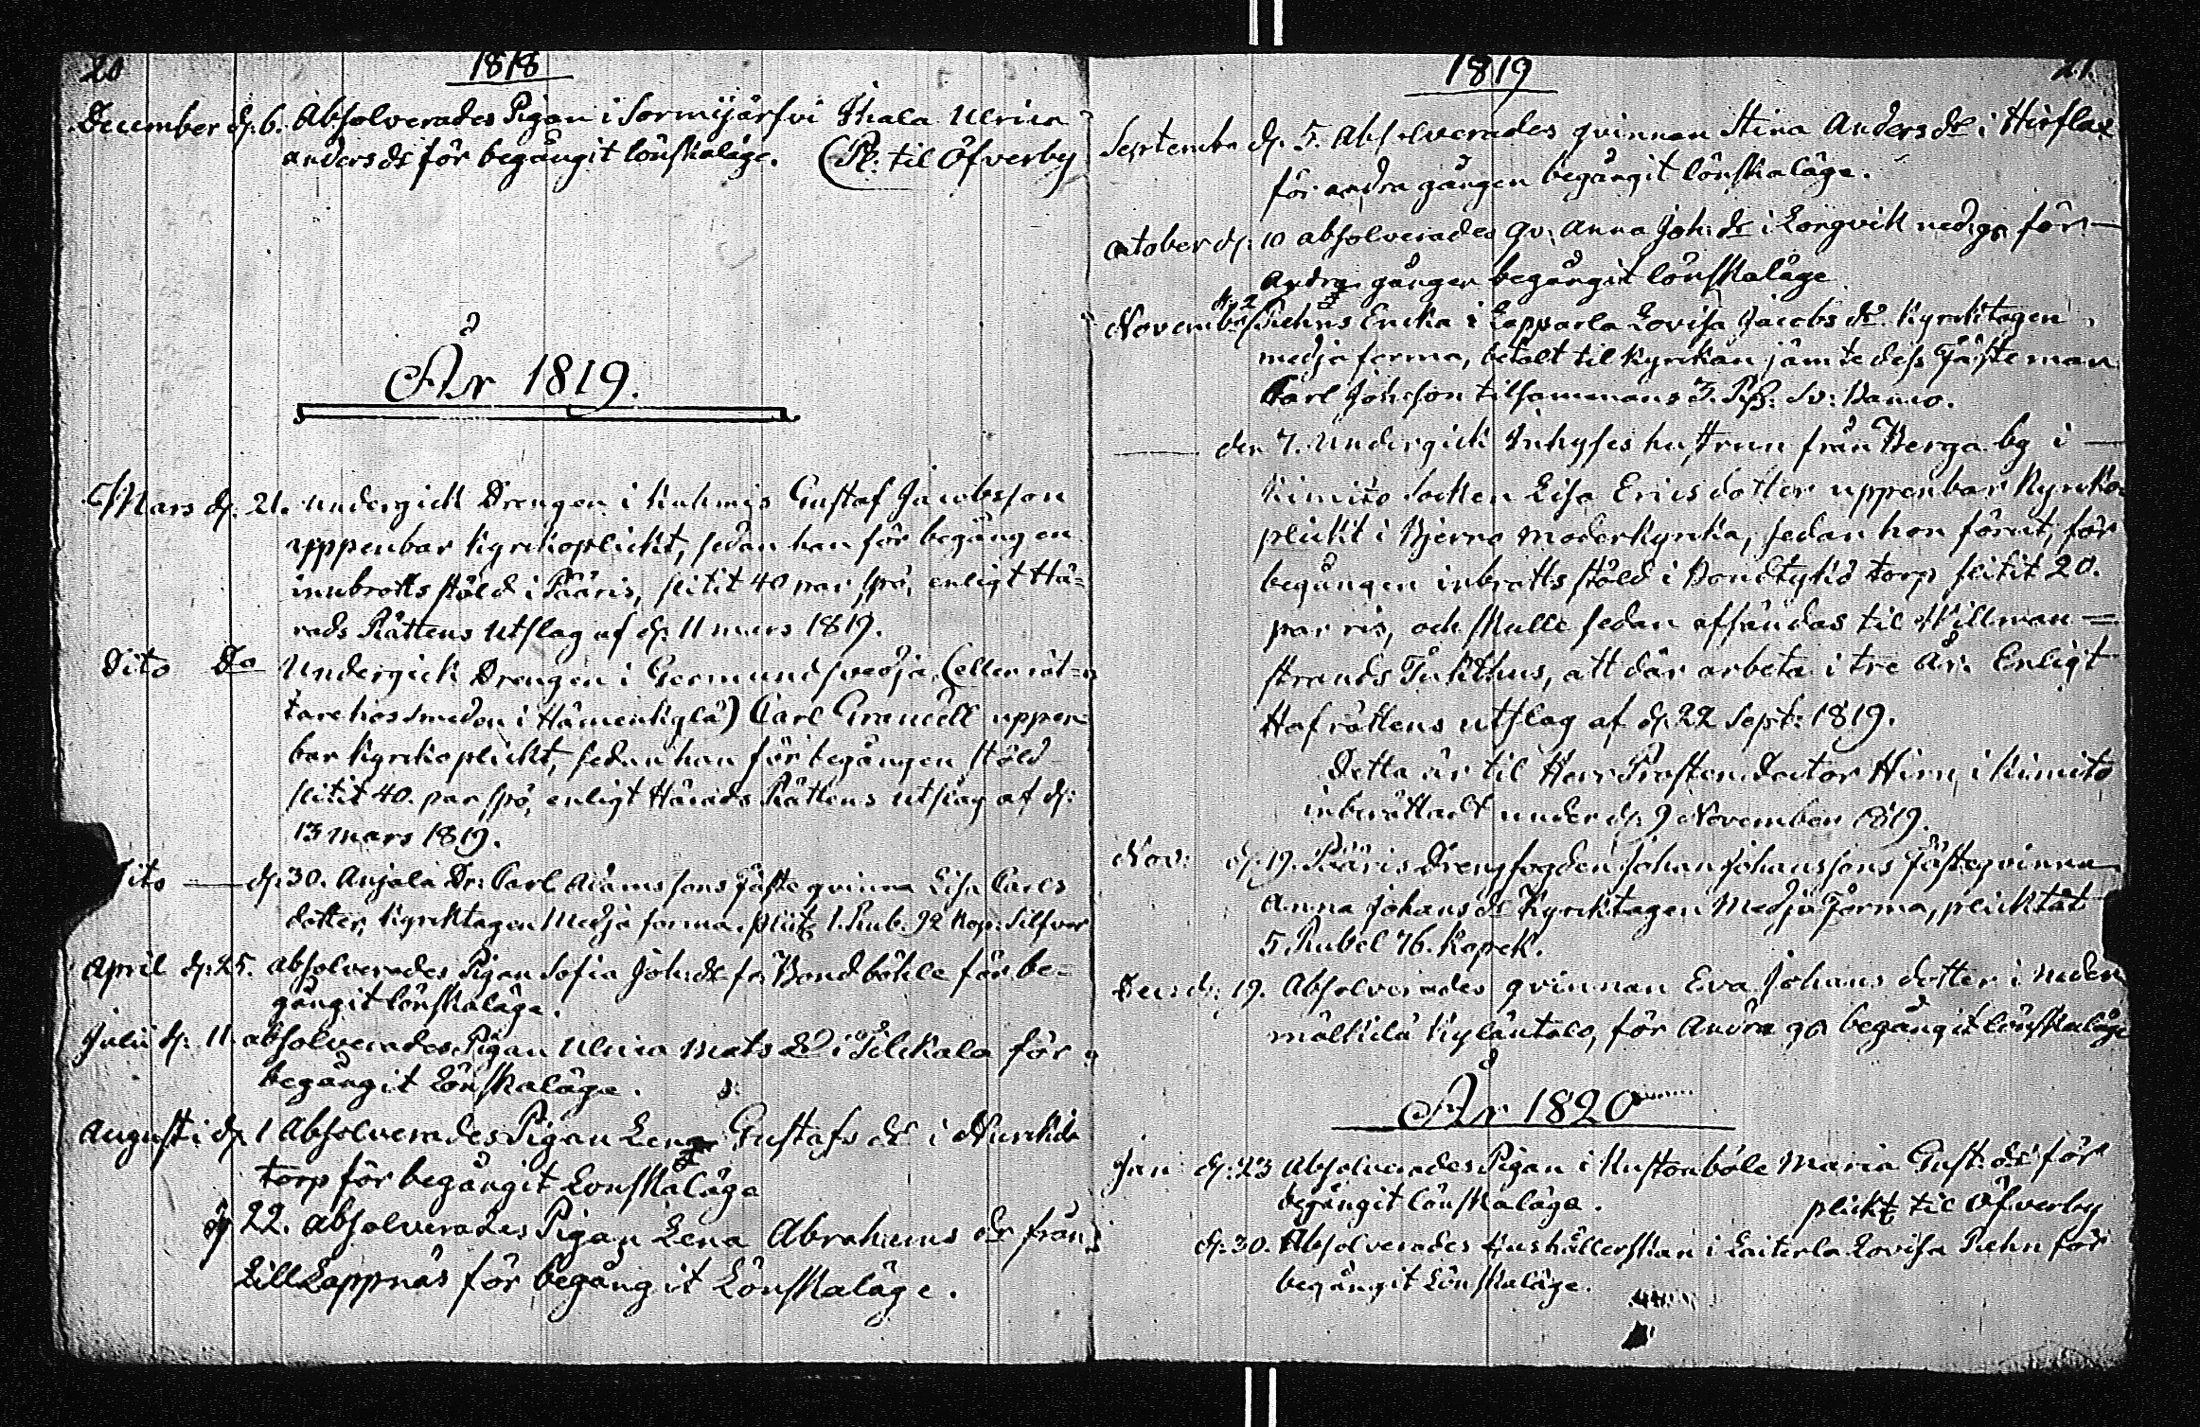 20
1818
December d: 6. Absolverades Pigan i Sormijärfvi Thala Ulrica
anders dr för begångit lönskaläge. (Pl. til Öfverby
År 1819.
Mars d: 21. undergick Drengen i Kuhmis Gustaf Jacobsson
uppenbar Kyrkoplickt, sedan han för begången
innbrotts stöld i Pääris, slitit 40 par spö, enligt Hä=
rads Rättens Utslag af d: 11 mars 1819.
Dito Do Undergick Drengen i Germundsvedja, (eller
tare hos smeden i Hämenkylä) Carl Grancell uppen
bar Kyrkoplickt, sedan han för begången stöld
slitit 40. par spö, enligt Härads Rättens utslag af d:
13 mars 1819.
Dito d: 30. Anjala Dr: Carl Adamssons fäste qvinna Lisa Carls
dotter, Kyrktagen Medja forma. plikt 1. Rub. 92 Kop: Silfver
April d: 25. absolverades Pigan Sofia Joh: dr fr Bondböhle för be=
gångit lönskaläge.
Julii d: 11. absolverades Pigan Ulrica Mats dr i Pilckala för
begångit Lönskaläge.
Augusti d: 1 Absolverades Pigan Lena Gustafs dr i Nurkila
torp för begångit Lönskaläge
d 22. absolverades Pigan Lena Abrahams dr från
Lill Lappnäs för begångit Lönskaläge.
1819
21.
Septembr d: 5. Absolverades qvinnan Stina Anders dr i Hirflax
för andra gången begångit lönskaläge.
October d: 10 absolverades qv: Anna Joh: dr i Longvik nedgn för
andra gången begångit lönskaläge
November d: 2 Enka i Lapparla Lovisa Jacobs dr. Kyrktagen
medja forma, betalt til Kyrkan jämte dess Fästeman
Carl Johsson tilsammans 3. Rß. Sv: Banco.
den 7. undergick Inhyses hustrun från Berga by i
Kimito Socken Lisa Erics dotter uppenbar Kyrko
plickt i Bjerno Moderkyrka, sedan hon förut, för
begången inbrotts stöld i Bondtykiö torp slitit 20.
par ris, och skulle sedan afsändas til Willman=
strands Tukthus, att där arbeta i tre År. Enligt
Hofrättens utslag af d: 22 Sept: 1819.
Detta är til Herr Prosten Doctor Hirn i Kimito
inberättadt under d: 9 November 1819.
Nov: d: 19. Pääris Drengfogden Johan Johanssons fästeqvinna
Anna Johans dr Kyrktagen Medja Forma, plicktat
5 Rubel 76. Kopek.
Dec: d: 19. Absolverades qvinnan Eva Johans dotter i Neder
mälkilä Kyläntalo, för Andra gn begångit lönskaläge
År 1820
Jan d: 23 Absolverades Pigan i Kustonböle Maria Gust: dr för
begångit lönskaläge. plickt til Öfverby
d: 30. Absolverades Hushållerskan i Laiterla Lovisa Ruhn för
begångit Lönskaläge.